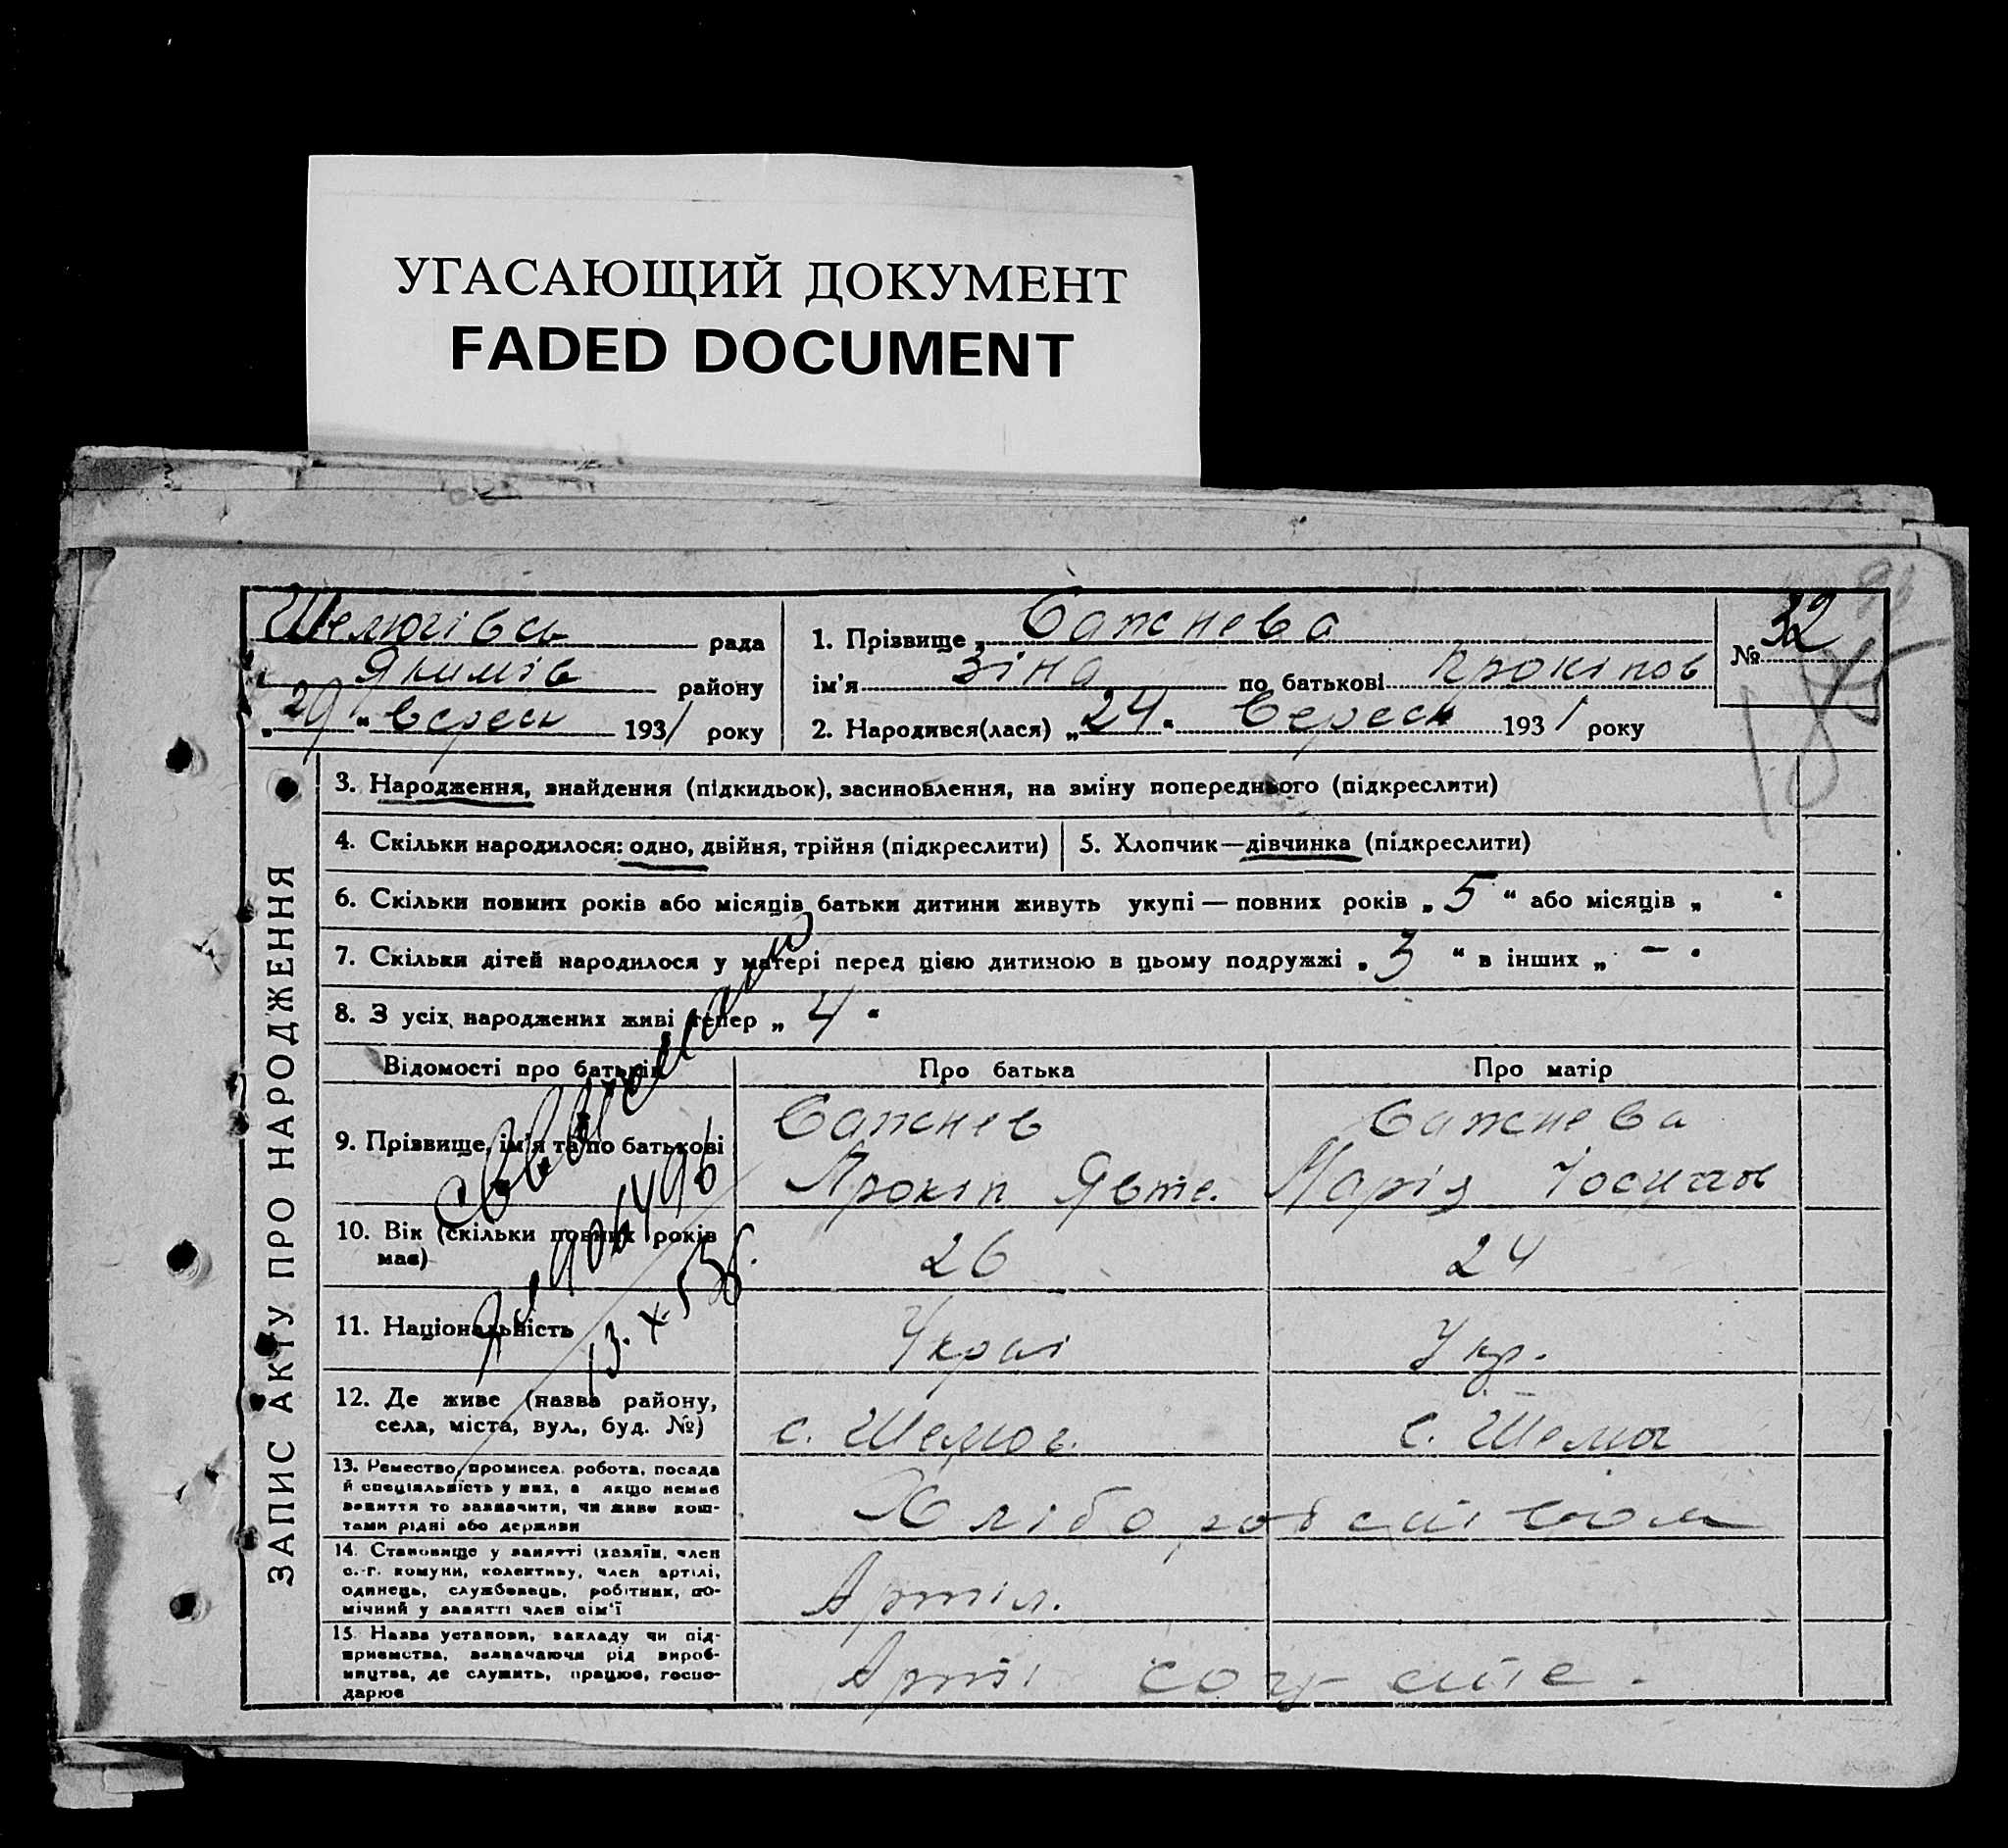 УГАСАЮЩИЙ ДОКУМЕНТ
FADED DOCUMENT
Шелюгівсь рада
Якимів району
„29“ вересн 1931 року
1. Прізвище Сапжнева
ім'я Зіна по батькові Прокіпов
2. Народився(лася) „24“ Вересн 1931 року
№ 32
185
ЗАПИС АКТУ ПРО НАРОДЖЕННЯ
3. Народження, знайдення (підкидьок), засиновлення, на зміну попереднього (підкреслити)
4. Скільки народилося: одно, двійня, трійня (підкреслити)
5. Хлопчик—дівчинка (підкреслити)
6. Скільки повних років або місяців батьки дитини живуть укупі — повних років „5“ або місяців „ “
7. Скільки дітей народилося у матері перед цією дитиною в цьому подружжі „3“ в інших „—“
8. З усіх народжених живі тепер „4“
Відомості про батьків
Про батька
Про матір
9. Прізвище, ім'я та по батькові
Прокіп Явте.
Марія
10. Вік (скільки повних років
має)
26
24
11. Національність
Украі
Укр.
13. X. 55
12. Де живе (назва району,
села, міста, вул., буд. №)
с. Шелюг.
с. Шелюг
13. Ремество, промисел, робота, посада
й спеціяльність у них, а якщо немає
заняття то зазначити, чи живе кош-
тами рідні або держави
Хліборобс
14. Становище у занятті (хазяїн, член
с.-г. комуни, колективу, член артілі,
одинець, службовець, робітник, по-
мічний у занятті член сім'ї
Артіл.
15. Назва установи, закладу чи під-
приємства, зазначаючи рід вироб-
ництва, де служить, працює, госпо-
дарює
Арті